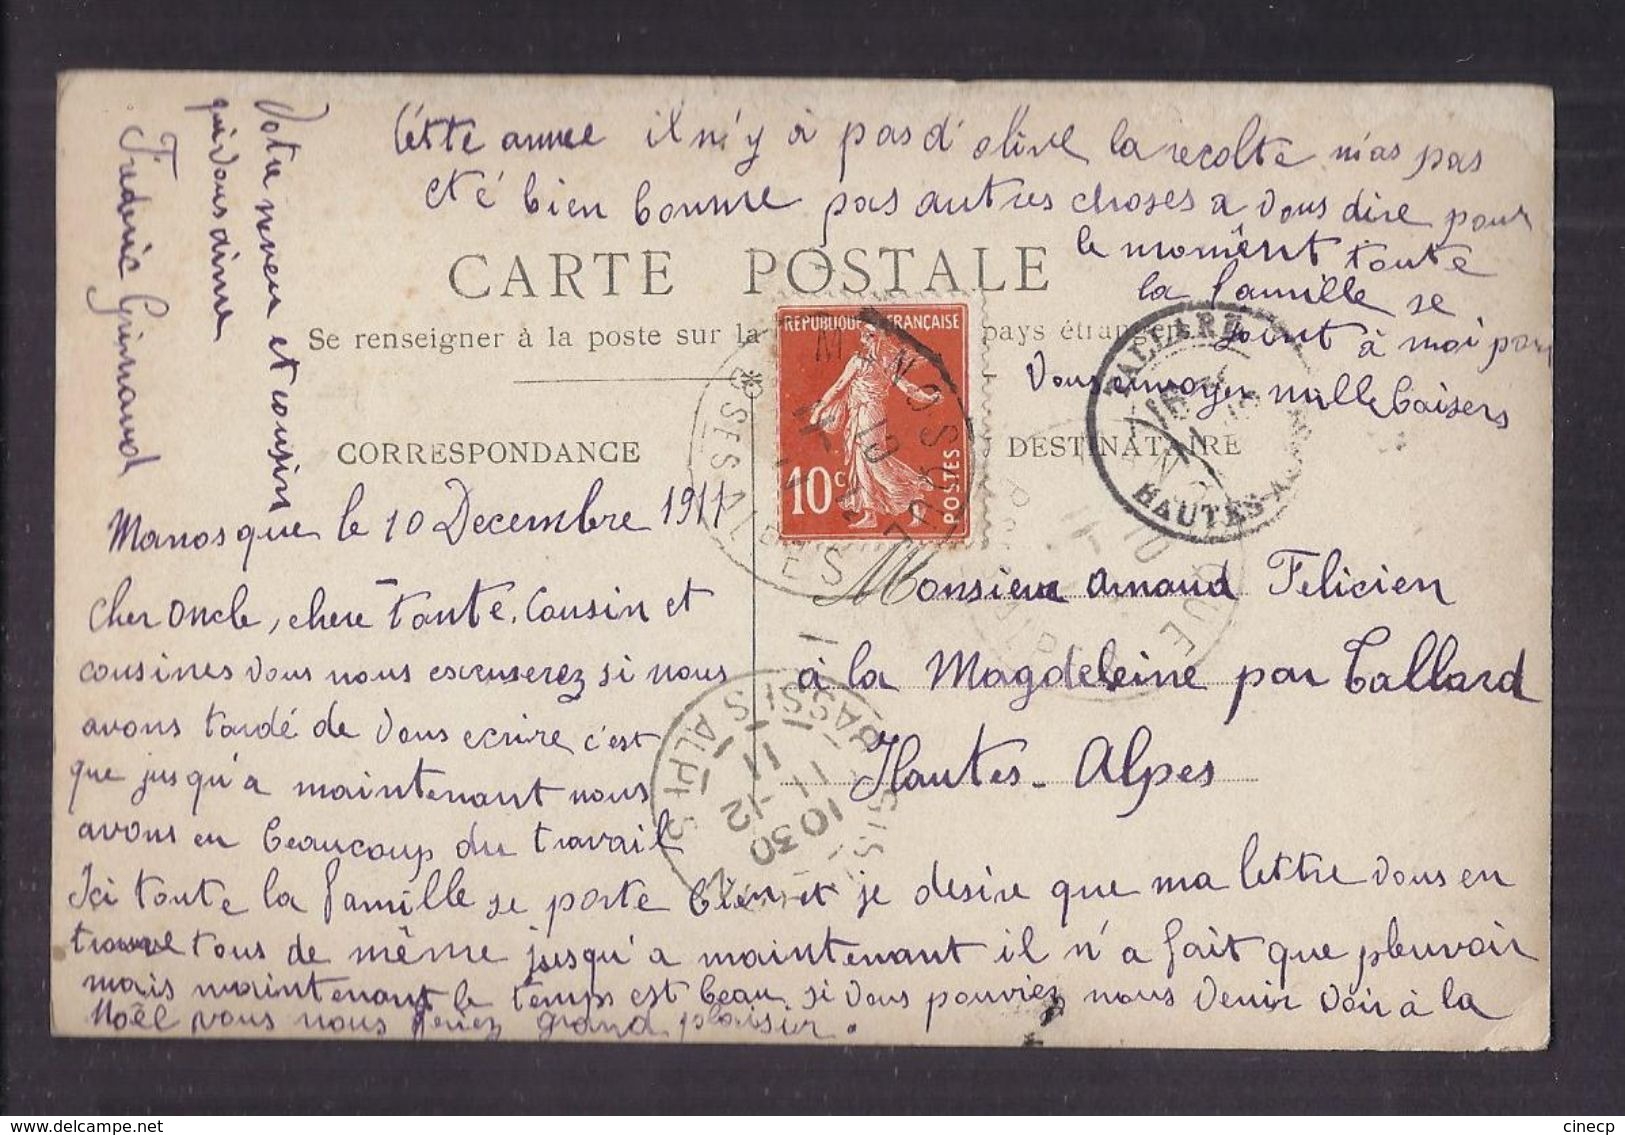 Manosque le 10 Decembre 1911
Cher Oncle, chere Tante, Cousin et
cousines vous nous escuserez si nous
avons tardé de vous ecrire c'est
que jusqu'a maintenant nous
avons eu beaucoup du travail
Ici toute la famille se porte bien et je desire que ma lettre vous en
trouve tous de même jusqu'a maintenant il n'a fait que pleuvoir
mais maintenant le temps est beau, si vous pouviez nous venir voir à la
Noël vous nous feriez grand plaisir.
Cette annee il n'y à pas d'olive la recolte n'as pas
eté bien bonne pas autres choses a vous dire pour
le momênt toute
la famille se
joint à moi pour
vous envoyer mille baisers
Votre neveu et cousin
qui vous aime
Frederic Grimaud
CARTE POSTALE
Se renseigner à la poste sur la pays étrangers
CORRESPONDANCE
DESTINATAIRE
REPUBLIQUE FRANÇAISE
10c
POSTES
MANOSQUE
BSES ALPES
TALLARD
HAUTES-ALPES
BASSES ALPES
10 30
11 -12
11
Monsieur Arnaud Felicien
à la Magdeleine par Tallard
Hautes-Alpes
www.delcampe.net
cinecp